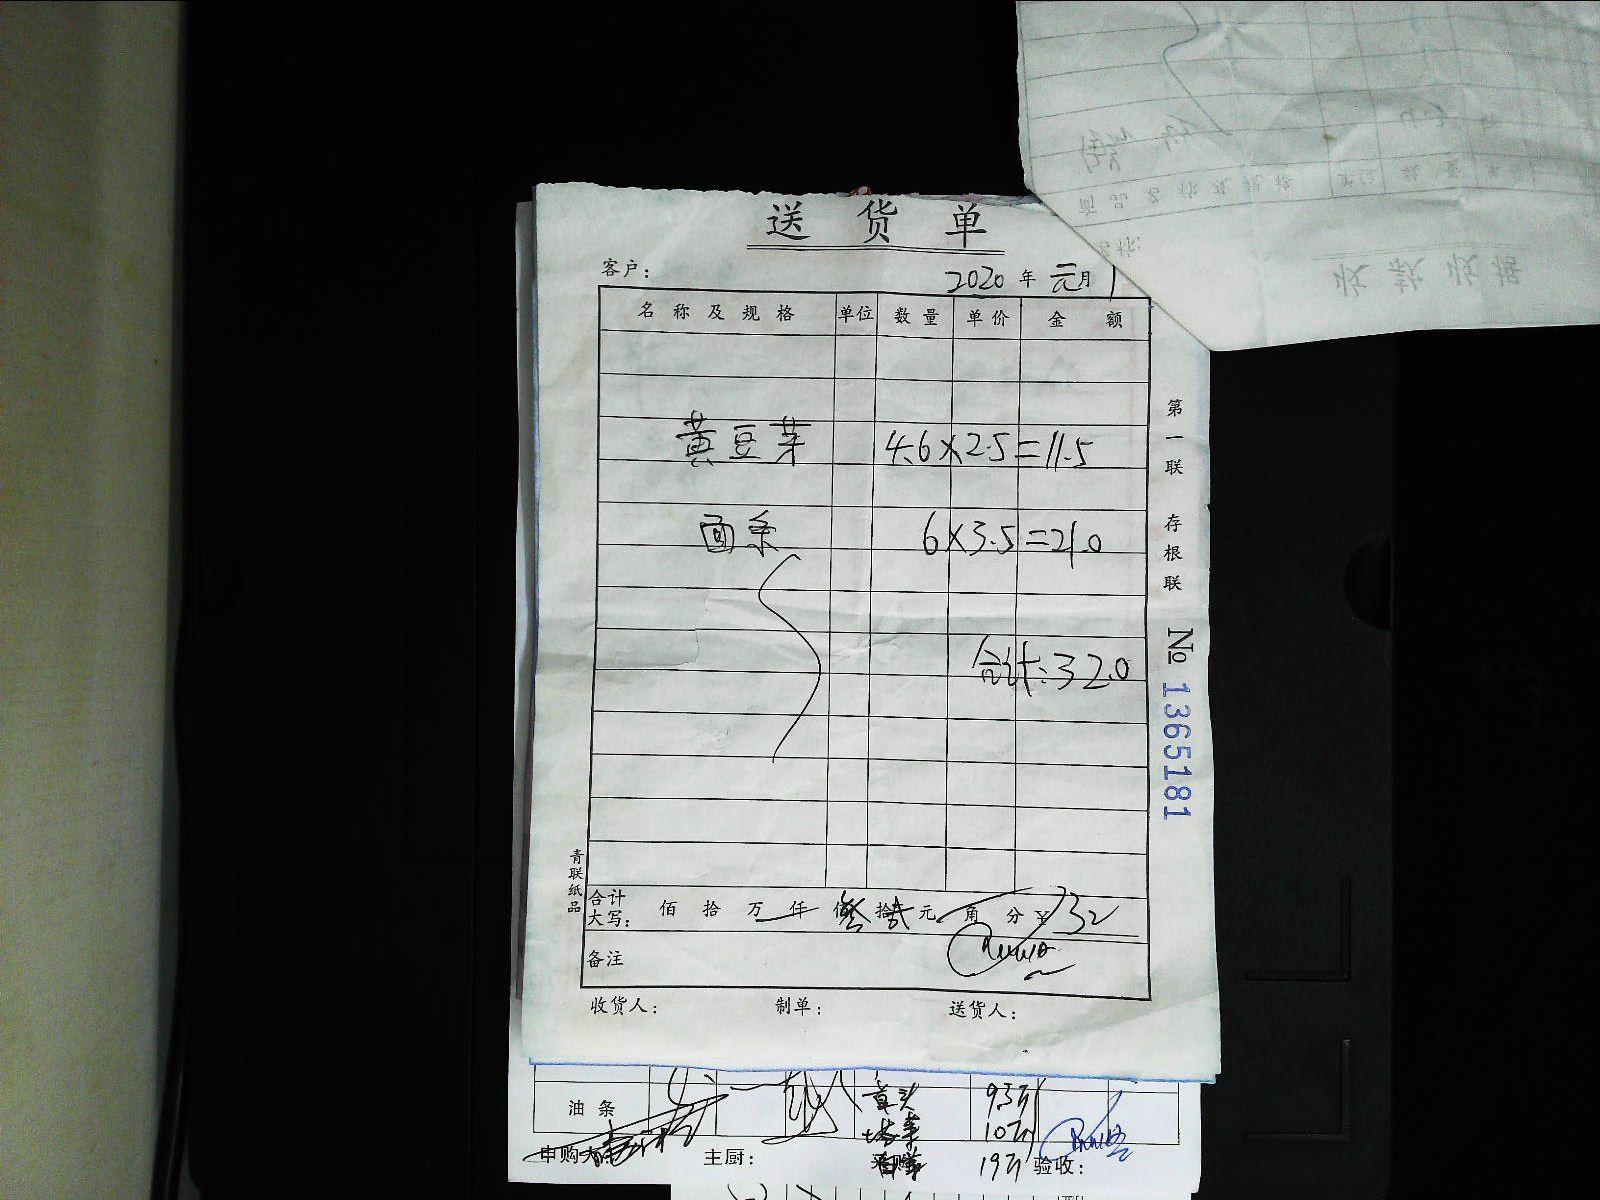 送货单
客户：
2020年元月1
名称及规格 单位 数量 单价 金额
黄豆芽 4.6×2.5=11.5
面条 6×3.5=21.0
合计：32.0
合计大写： 佰 拾 万 仟 佰叁 拾贰 元 角 分 ¥32
备注
收货人： 制单： 送货人：
第一联 存根联
№ 1365181
青联纸品
收款收据
商品名称及规格 单位 数量
油条 9.3斤
10斤
申购人 主厨： 19斤 验收：